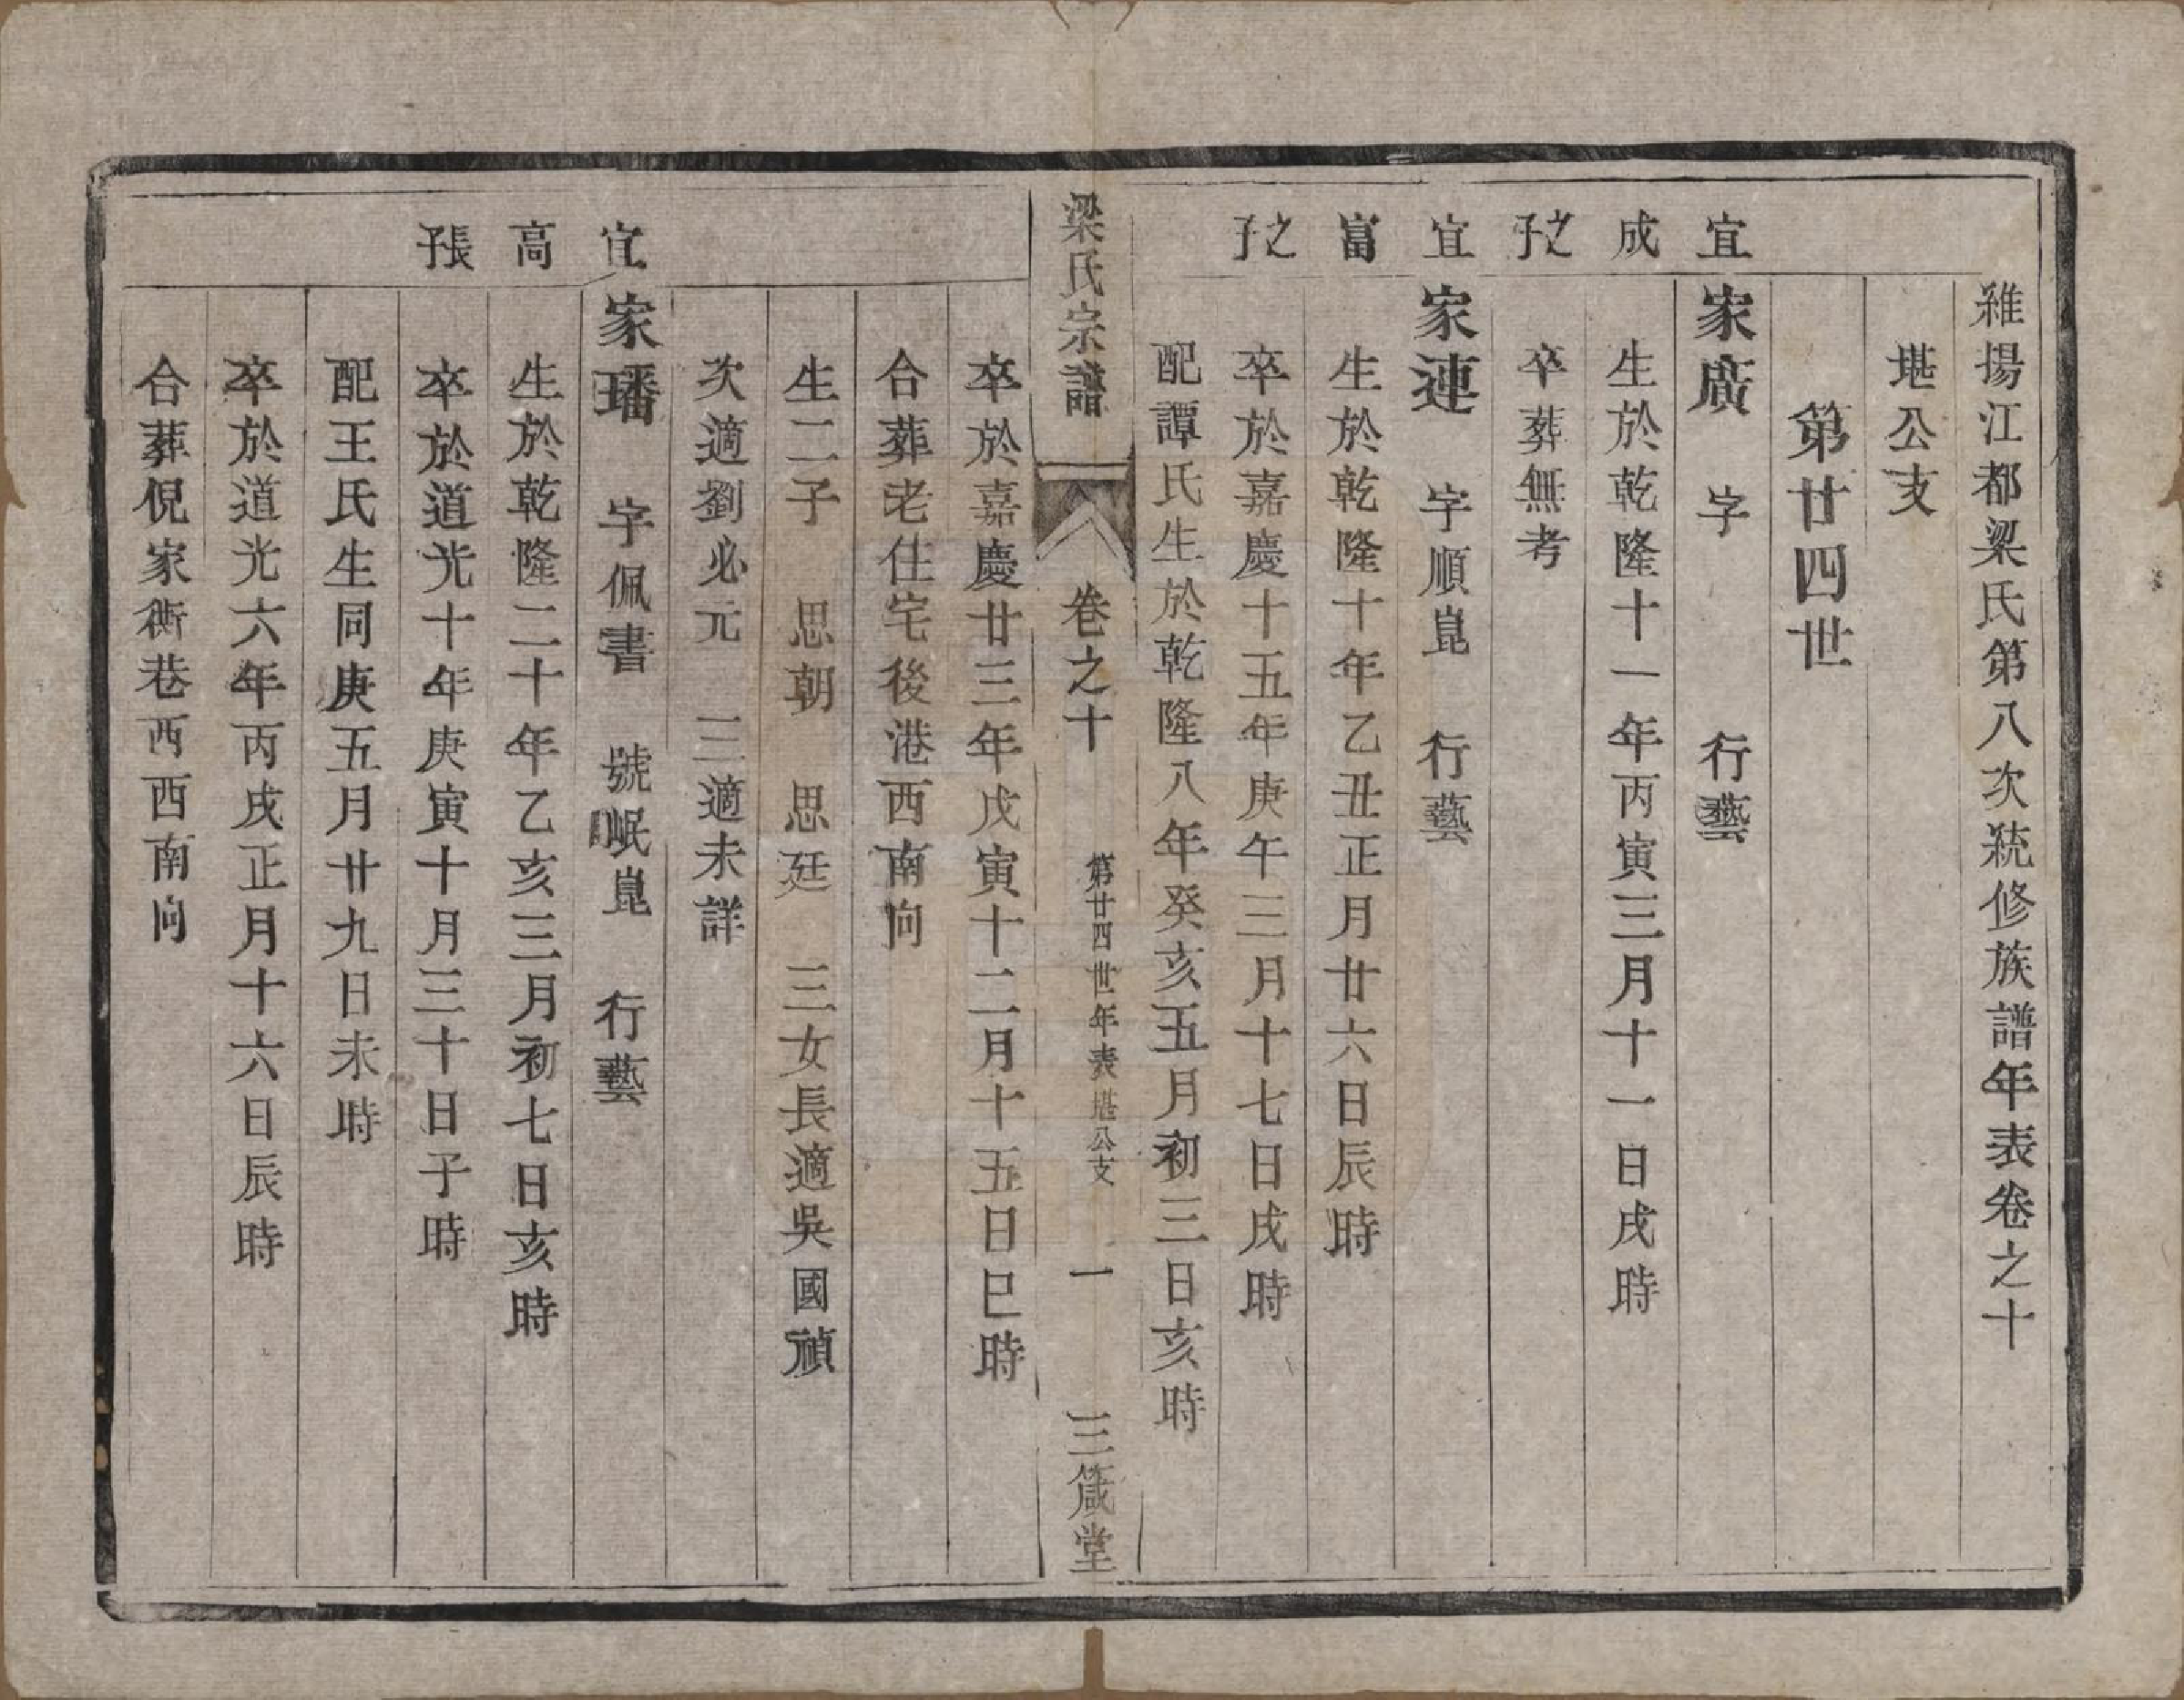 維揚江都梁氏第八次統修族譜年表卷之十
堪公支
第廿四世
宜成之子
家廣 字 行藝
生於乾隆十一年丙寅三月十一日戌時
卒葬無考
宜富之子
家連 字順崑 行藝
生於乾隆十年乙丑正月廿六日辰時
卒於嘉慶十五年庚午三月十七日戌時
配譚氏生於乾隆八年癸亥五月初三日亥時
梁氏宗譜 卷之十 第廿四世年表堪公支 一 三箴堂
卒於嘉慶廿三年戊寅十二月十五日巳時
合葬老住宅後港西南向
生二子 思朝 思廷 三女長適吳國禎
次適劉必元 三適未詳
宜高長子
家璠 字佩書 號岷崑 行藝
生於乾隆二十年乙亥三月初七日亥時
卒於道光十年庚寅十月三十日子時
配王氏生同庚五月廿九日未時
卒於道光六年丙戌正月十六日辰時
合葬倪家衖巷西西南向